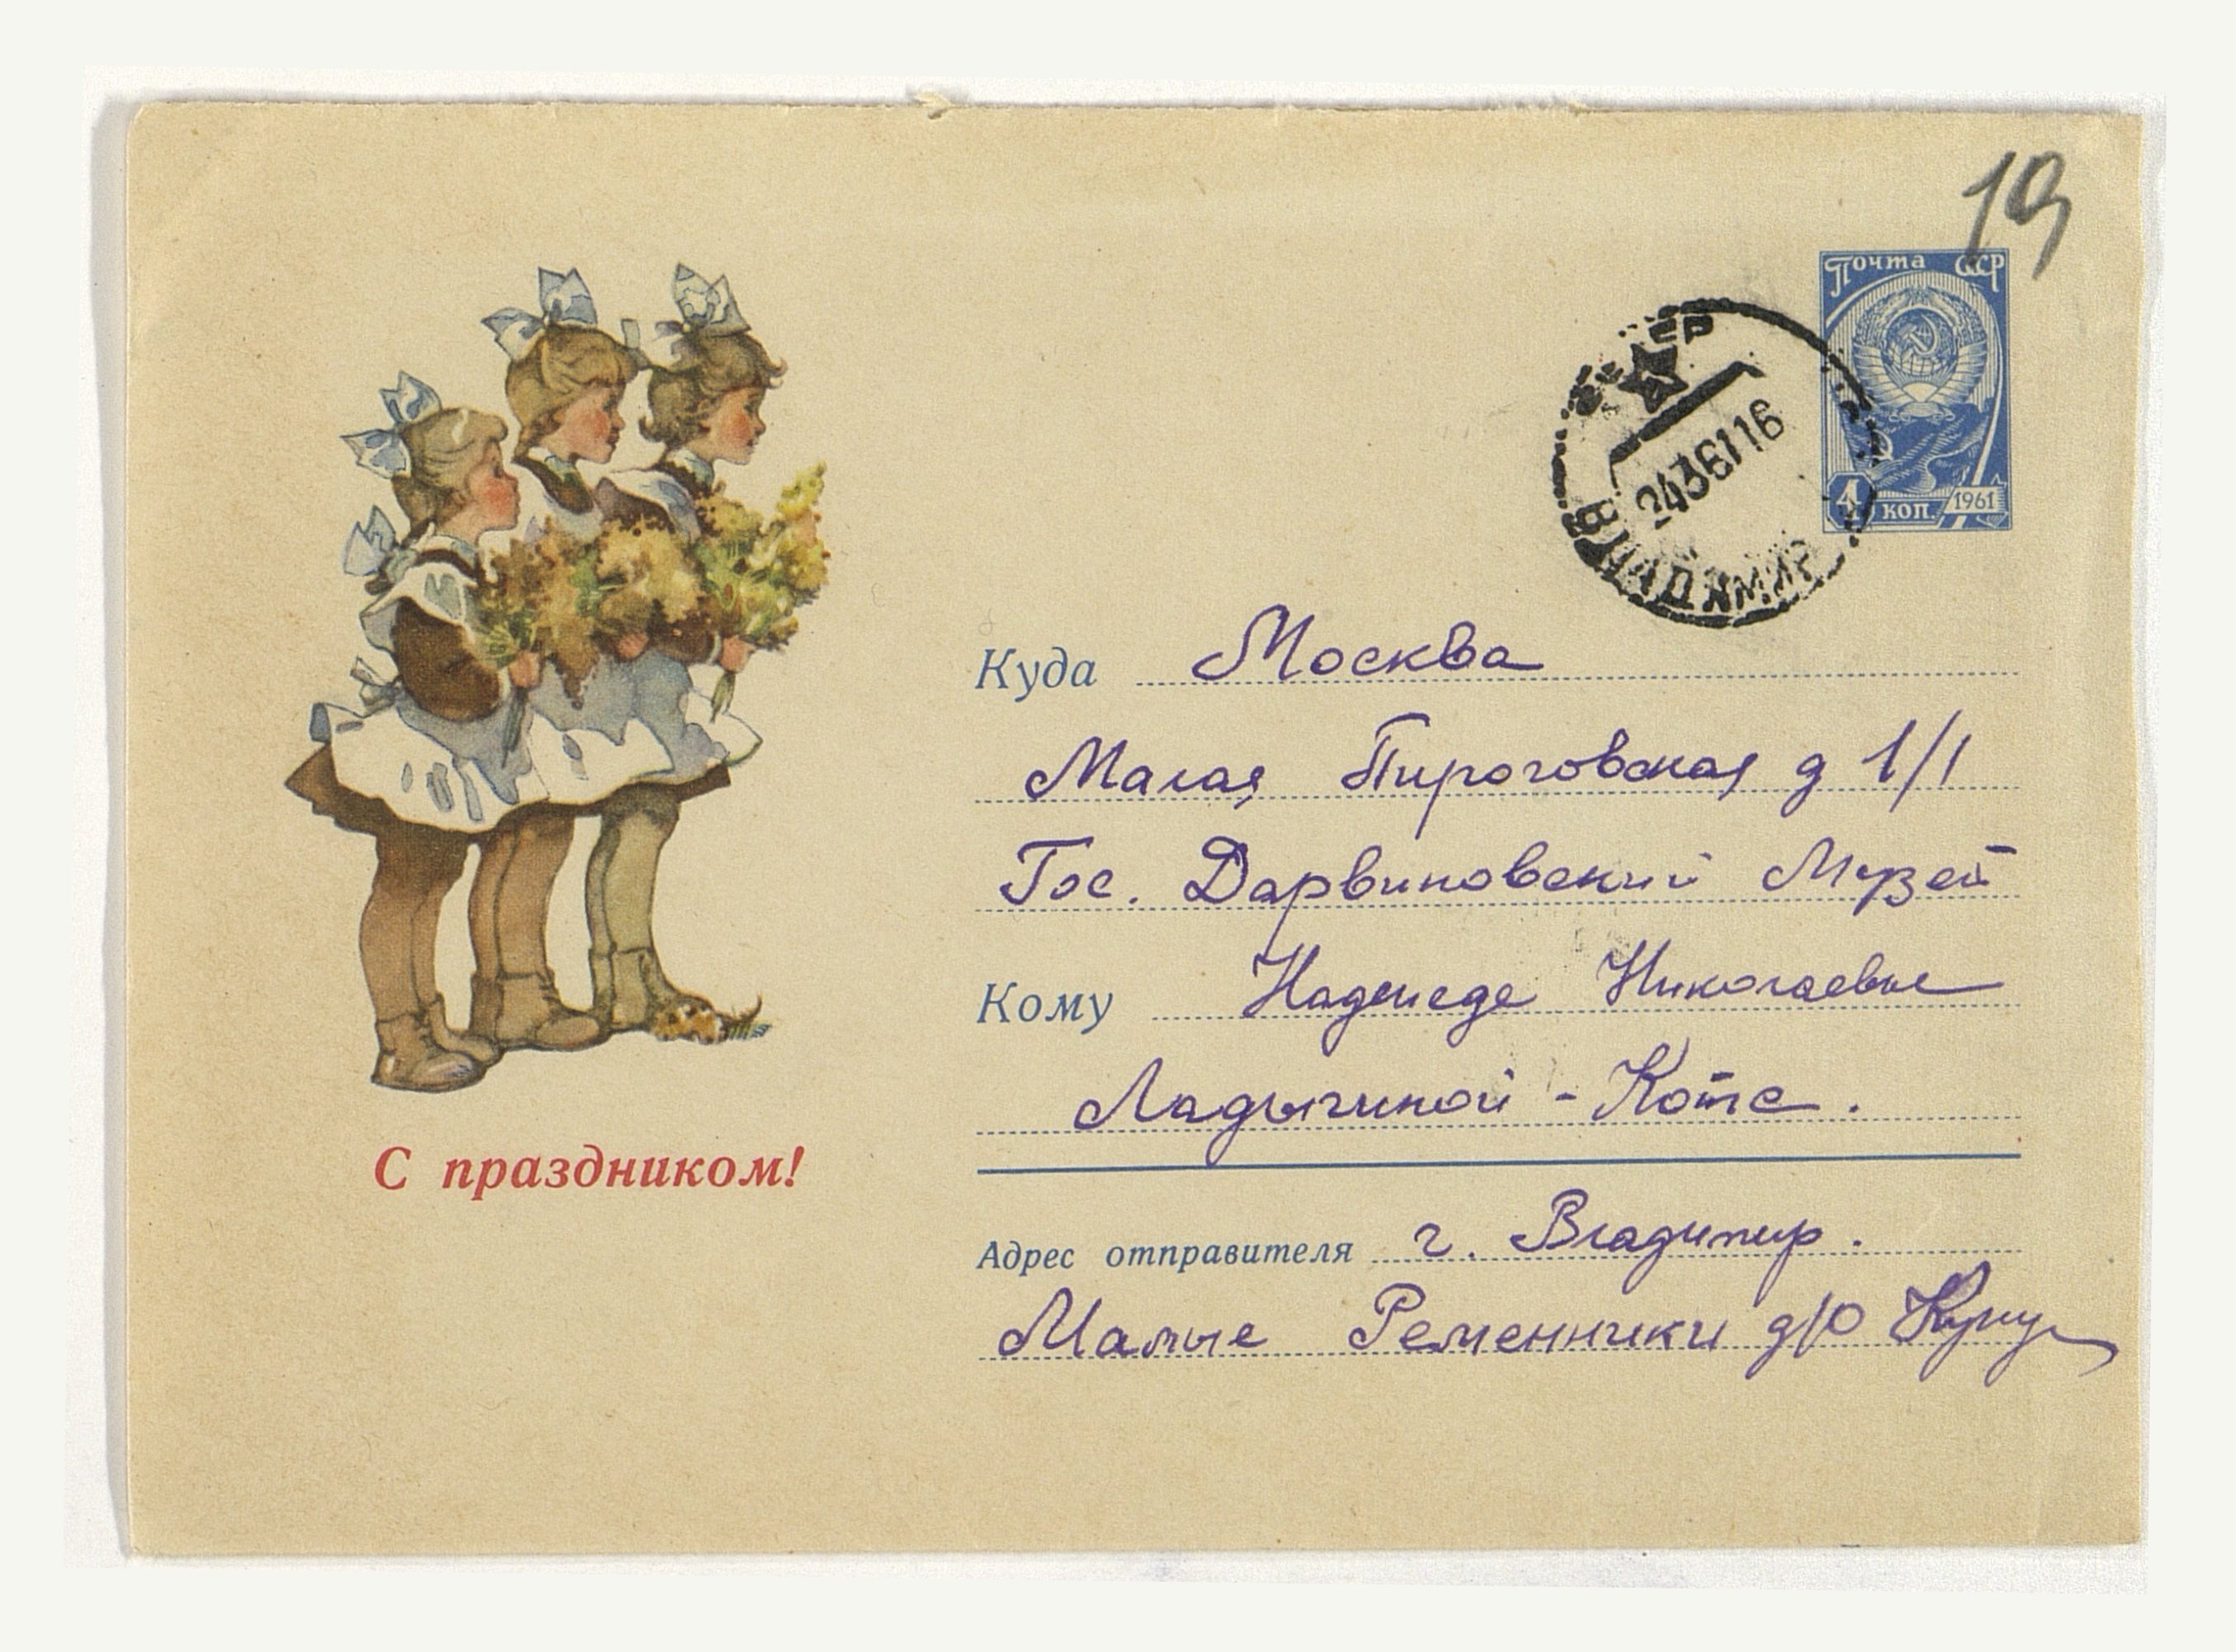 19
Почта СССР
4 коп. 1961
СССР
2436116
ВЛАДИМИР
Куда Москва
Малая Пироговская д 1/1
Гос. Дарвиновский Музей
Кому Надежде Николаевне
Ладыгиной - Котс.
С праздником!
Адрес отправителя г. Владимир.
Малые Ременники д/о